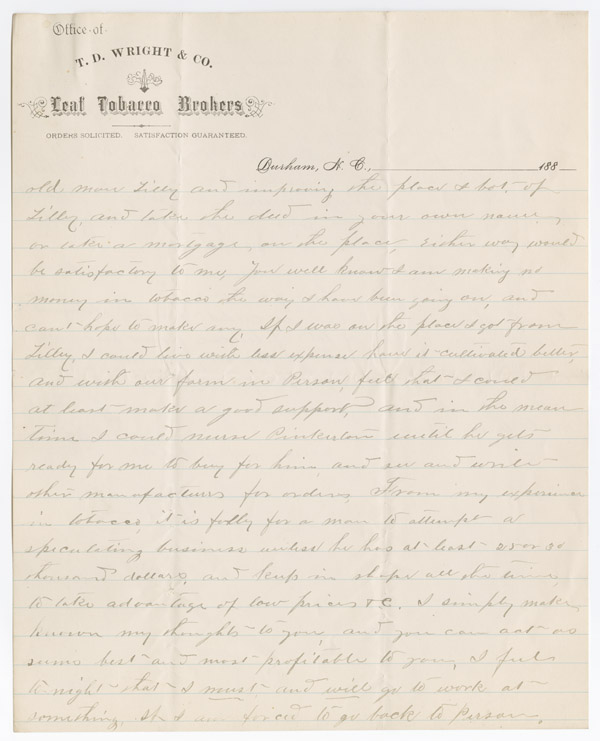 Office of
T. D. WRIGHT & CO.
Leaf Tobacco Brokers
ORDERS SOLICITED. SATISFACTION GUARANTEED.
Durham, N. C., 188
old man Tilley and improving the place I bot. of
Tilley, and take the deed in your own name,
or take a mortgage, on the place, Either way would
be satisfactory to me, You well know I am making no
money in tobacco the way I have been going on, and
cant hope to make any, If I was on the place I got from
Tilley, I could live with less expense have it cultivated better,
and with our farm in Person, feel that I could
at least make a good support, and in the mean
time I could nurse Pinkerton until he gets
ready for me to buy for him, and see and write
other manufacturers for orders, From my experience
in tobacco, it is folly for a man to attempt a
speculating business unless he has at least 25 or 30
thousand dollars, and keep in shape all the time
to take advantage of low prices &C. I simply make
known my thoughts to you, and you can act as
seems best and most profitable to you, I feel
to night that I must and will go to work at
something. If I am forced to go back to Person,